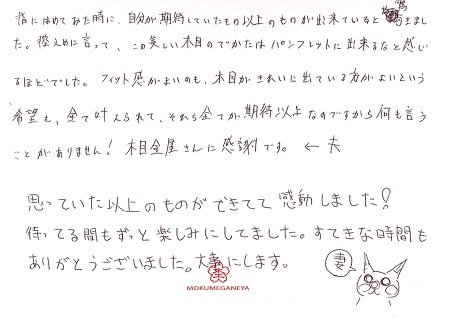 指にはめてみた時に、自分が期待していたもの以上のものが出来ていると驚きまし
た。控えめに言って、この美しい木目のでかたはパンフレットに出来るなと感じ
るほどでした。フィット感がよいのも、木目がきれいに出ている方がよいという
希望も、全て叶えられて、それら全てが期待以上なのですから何も言う
ことがありません！木目金屋さんに感謝です。←夫
思っていた以上のものができてて感動しました！
待ってる間もずっと楽しみにしてました。すてきな時間も
ありがとうございました。大事にします。
妻
MOKUMEGANEYA